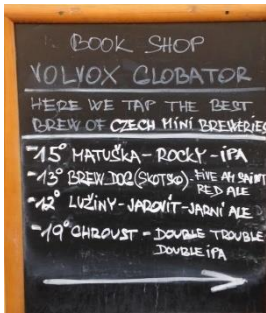 BOOK SHOP
VOLVOX GLOBATOR
HERE WE TAP THE BEST
BREW OF CZECH MINI BREWERIES
-15° MATUŠKA - ROCKY - IPA
-13° BREW DOG (SKOTSKO) - FIVE AM SAINT
RED ALE
-12° LUŽINY - JAROVÍT - JARNÍ ALE
-19° CHROUST - DOUBLE TROUBLE
DOUBLE IPA